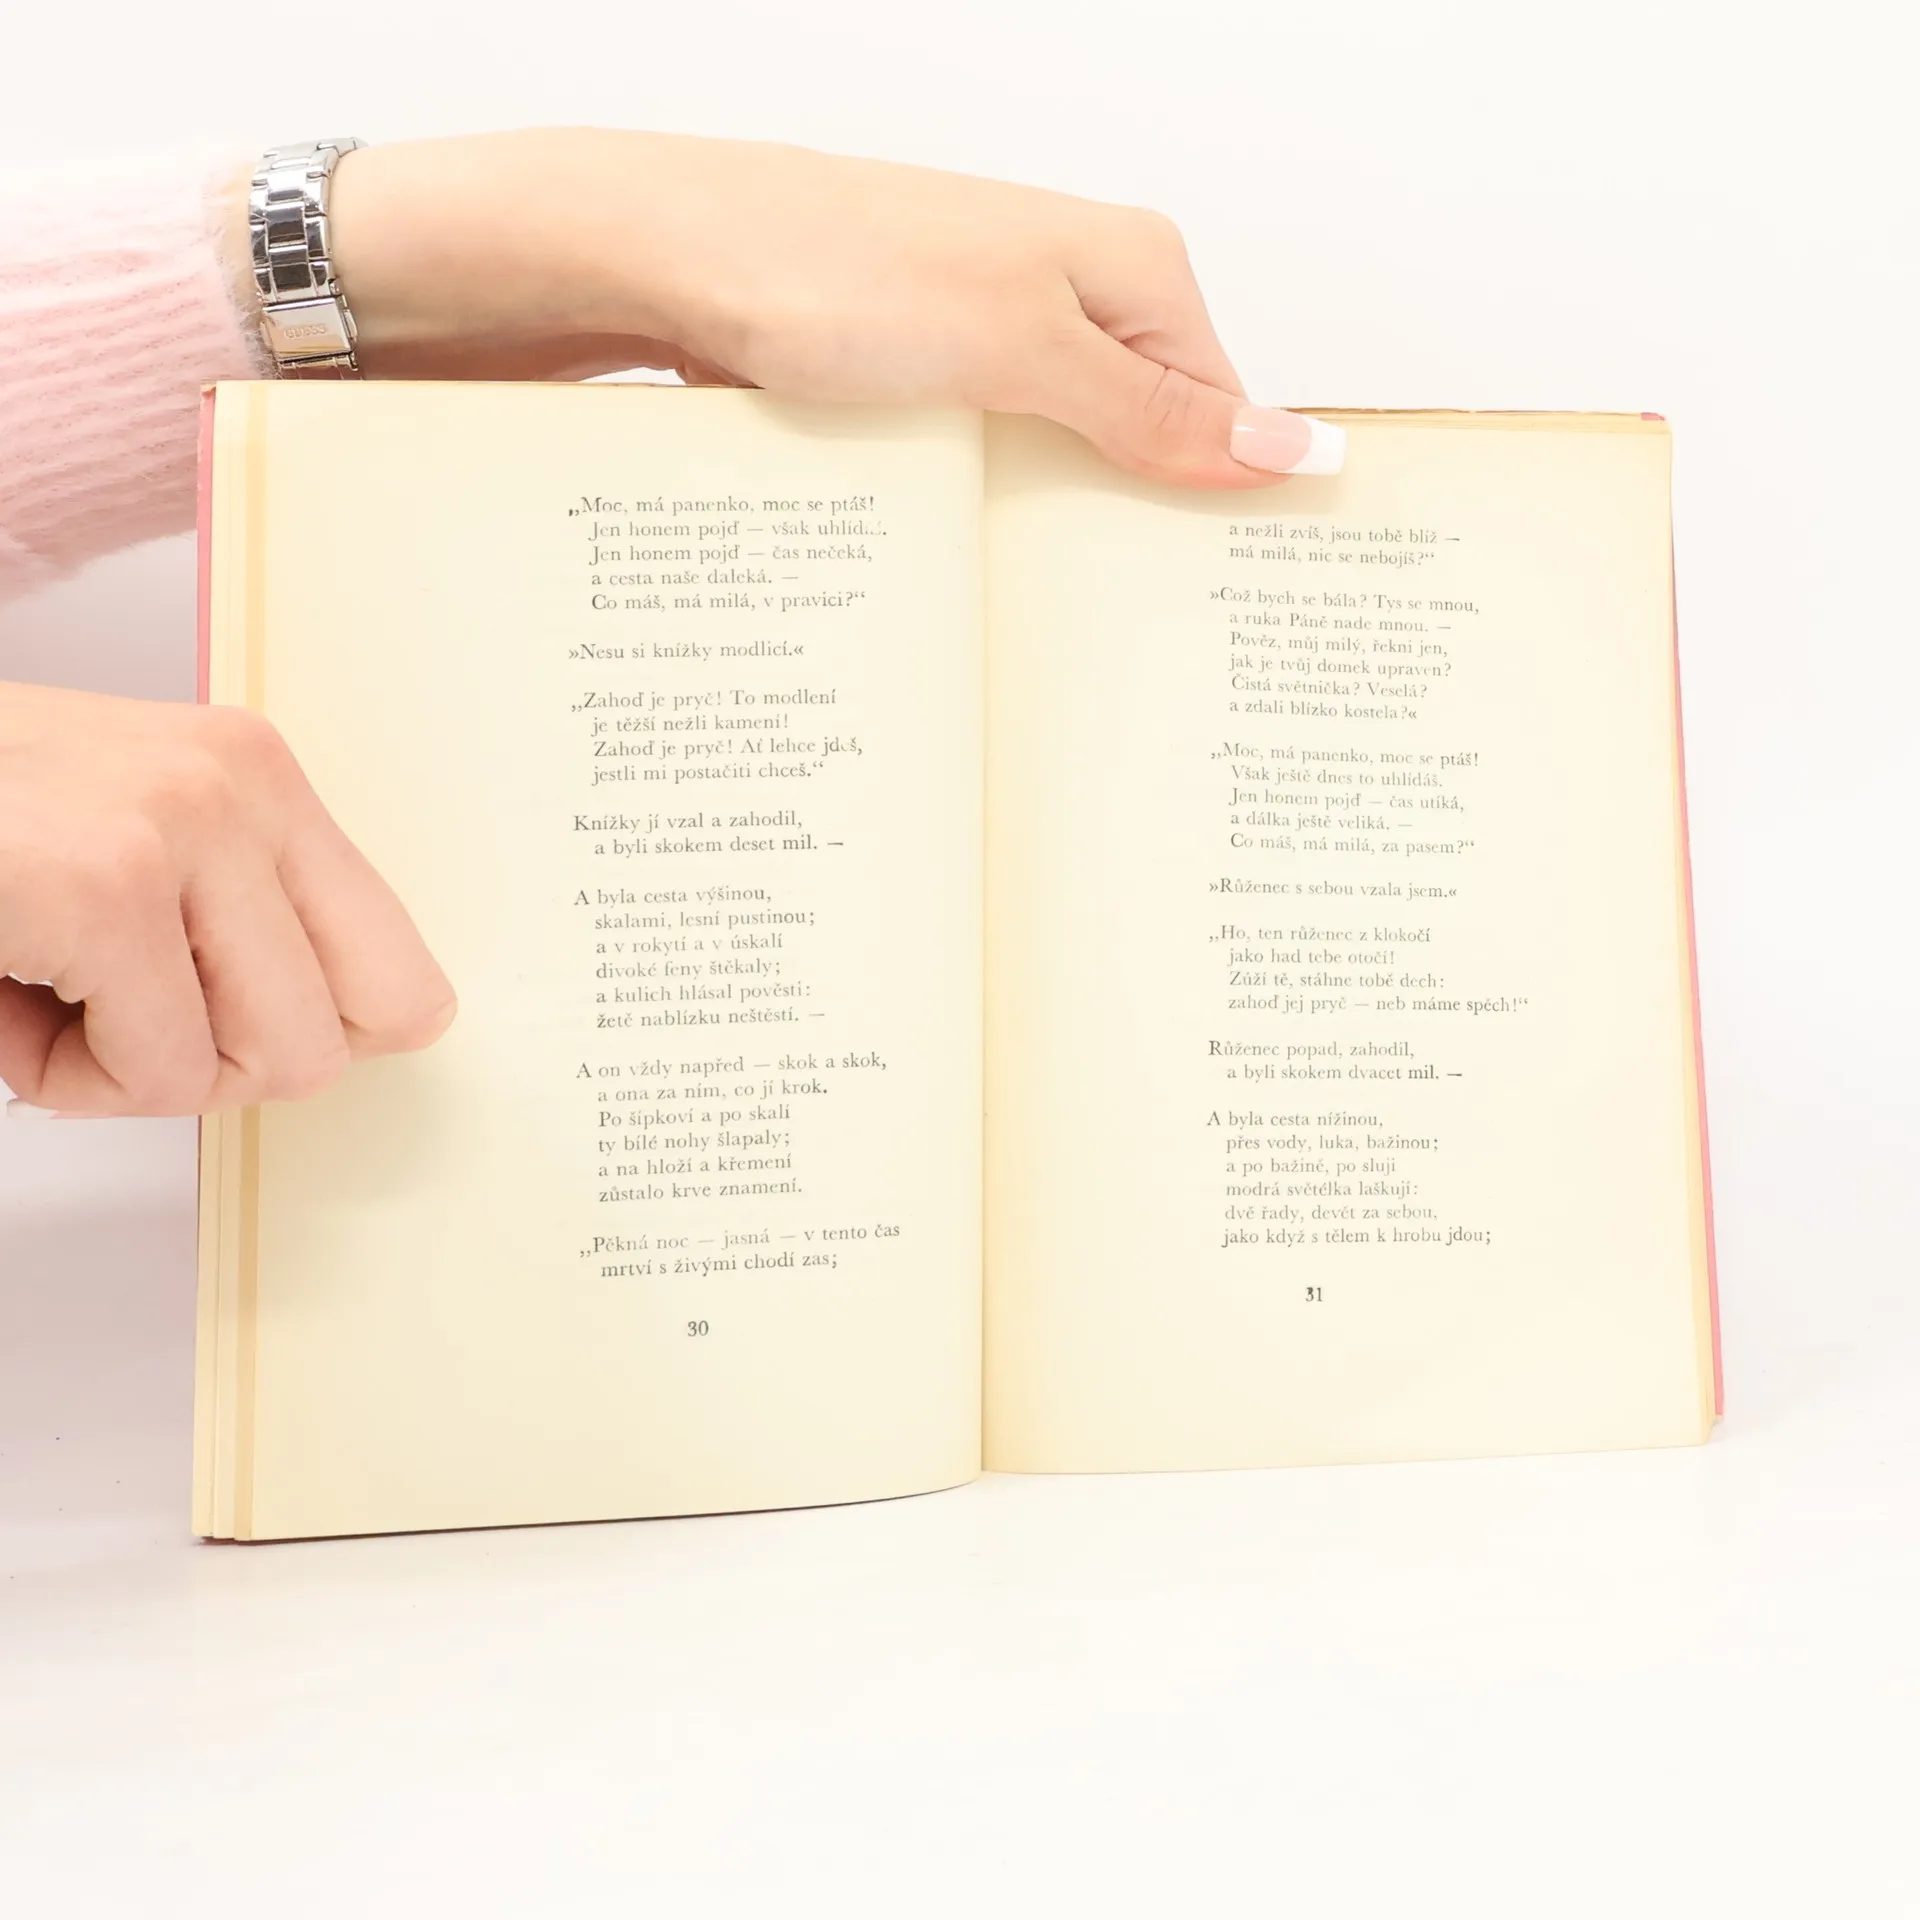 „Moc, má panenko, moc se ptáš!
Jen honem pojď — však uhlídáš.
Jen honem pojď — čas nečeká,
a cesta naše daleká. —
Co máš, má milá, v pravici?“
»Nesu si knížky modlicí.«
„Zahoď je pryč! To modlení
je těžší nežli kamení!
Zahoď je pryč! Ať lehce jdeš,
jestli mi postačiti chceš.“
Knížky jí vzal a zahodil,
a byli skokem deset mil. —
A byla cesta výšinou,
skalami, lesní pustinou;
a v rokytí a v úskalí
divoké feny štěkaly;
a kulich hlásal pověsti:
žetě nablízku neštěstí. —
A on vždy napřed — skok a skok,
a ona za ním, co jí krok.
Po šípkoví a po skalí
ty bílé nohy šlapaly;
a na hloží a křemení
zůstalo krve znamení.
„Pěkná noc — jasná — v tento čas
mrtví s živými chodí zas;
30
a nežli zvíš, jsou tobě blíž —
má milá, nic se nebojíš?“
»Což bych se bála? Tys se mnou,
a ruka Páně nade mnou. —
Pověz, můj milý, řekni jen,
jak je tvůj domek upraven?
Čistá světnička? Veselá?
a zdali blízko kostela?«
„Moc, má panenko, moc se ptáš!
Však ještě dnes to uhlídáš.
Jen honem pojď — čas utíká,
a dálka ještě veliká. —
Co máš, má milá, za pasem?“
»Růženec s sebou vzala jsem.«
„Ho, ten růženec z klokočí
jako had tebe otočí!
Zúží tě, stáhne tobě dech:
zahoď jej pryč — neb máme spěch!“
Růženec popad, zahodil,
a byli skokem dvacet mil. —
A byla cesta nížinou,
přes vody, luka, bažinou;
a po bažině, po sluji
modrá světélka laškují:
dvě řady, devět za sebou,
jako když s tělem k hrobu jdou;
31